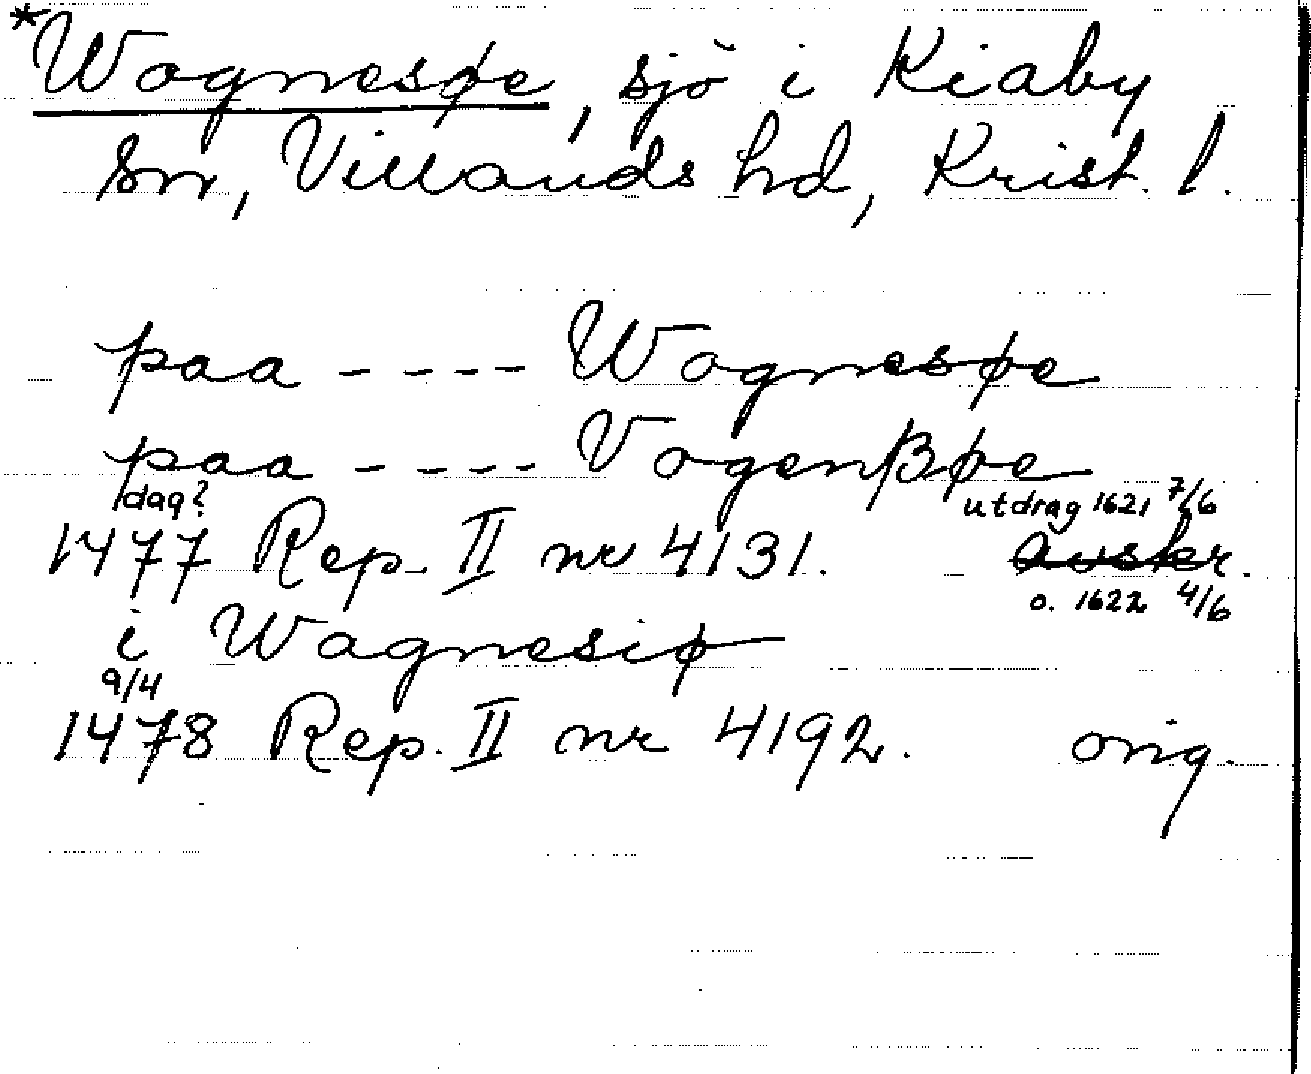 *Wognesøe, sjö i Kiaby
sn, Villands hd, Krist. l.
paa ---- Wognesøe
paa ---- Vogenßøe
dag? utdrag 1621 7/6
1477 Rep. II nr 4131. avskr.
o. 1622 4/6
i Wagnesiø
9/4
1478 Rep. II nr 4192. orig.